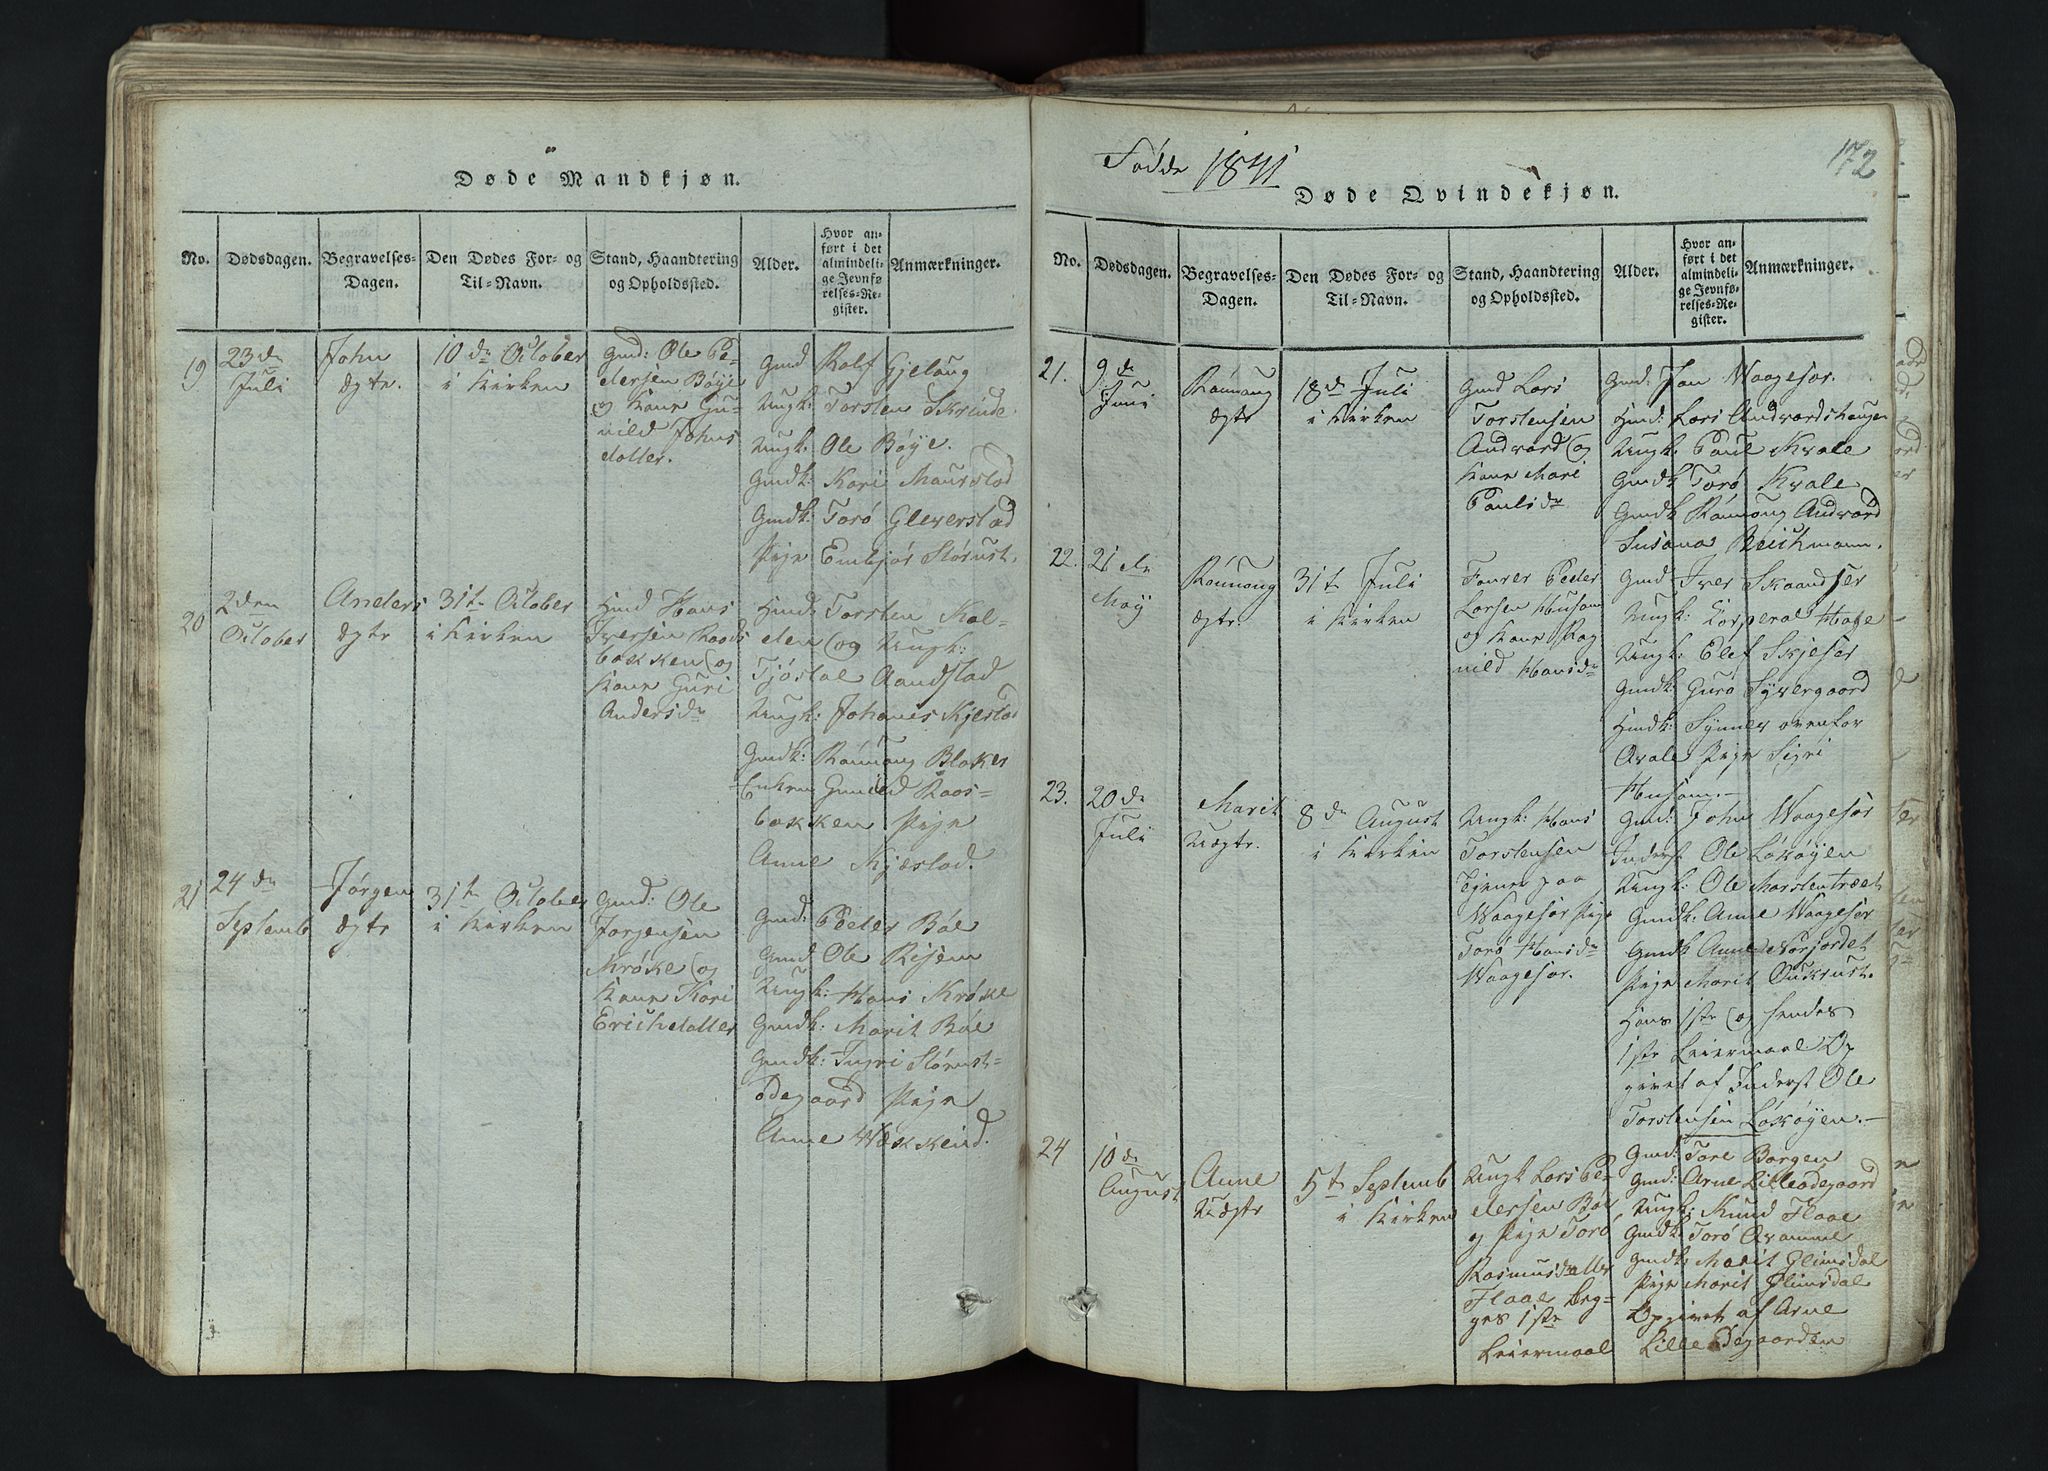 Døde Mandkjøn.
No.
Dødsdagen.
Begravelses-
Dagen.
Den Dødes For- og
Til-Navn.
Stand, Haandtering
og Opholdssted.
Alder.
Hvor an-
ført i det
almindeli-
ge Jevnfø-
relses-Re-
gister.
Anmærkninger.
19
23de
Juli
John
Ægte.
10de October
i Kirken
Gmd: Ole Pe-
dersen Böye
og Kone Gu-
nild Johns
datter.
Gmd Rolf Gjelaug
Ungk: Torsten Skrinde
Ungk: Ole Böye.
Gmdk: Kari Maurstad
Gmdk: Torö Gleverstad
Pige Embjör Störust.
20
2den
October
Anders
Ægte
31te October
i Kirken
Hmd Hans
Iversen Raads
bakken og
Kone Guri
Andersdr
Hmd: Torsten Kol-
den og Ungk:
Tjöstal Aandstad
Ungk: Johanes Kjestad
Gmdk: Rönnoug Bloker
Enken Gunild Raas-
bakken Pige
Anne Kjæstad.
21
24de
Septemb
Jörgen
Ægte
31te October
i Kirken
Gmd: Ole
Jörgensen
Kröke og
Kone Kari
Erichdatter
Gmd: Peder Böe
Gmd Ole Risem
Ungk: Hans Kröke
Gmdk: Marit Böe
Gmdk: Ingri Störust-
ödegaard Pige
Anne Hækkeind.
Födde 1841
172
Døde Qvindekjøn.
No.
Dødsdagen.
Begravelses-
Dagen.
Den Dødes For- og
Til-Navn.
Stand, Haandtering
og Opholdssted.
Alder.
Hvor an-
ført i det
almindeli-
ge Jevnfø-
relses-Re-
gister.
Anmærkninger.
21.
9de
Juni
Rönnoug
Ægte
18de Juli
i Kirken
Gmd Lars
Torstensen
Andvord og
Kone Mari
Paulsdr
Gmd: Jan Waagesör.
Hmd: Lars Andvordshaugen
Ungk: Paul Kvale
Gmdk Torö Kvale
Gmdk Rönnoug Andvord
Susana Reichmann.
22.
21de
May
Rönnoug
Ægte.
31te Juli
i Kirken
Fourer Peder
Larsen Husom
og Kone Rag
nild Hansdr
Gmd Iver Skaandser
Ungk: Corperal Hage
Ungk: Elef Skjesör
Gmdk: Gurö Syvergaard
Hmdk: Synnev ovenfor
Qvale Pige Sigri
Husom.
23.
20de
Juli
Marit
Uægte.
8de August
i Kirken
Ungk: Hans
Torstensen
Tjener paa
Waagesör Pige
Torö Hansdr
Waagesör.
Gmd: John Waagesör
Inderst Ole Lököyen
Ungk: Ole Morstentræet
Gmdk: Anne Waagesör
Gmdk Anne Norjordet
Pige Marit Oukrust.
Hans 1ste og hendes
1ste Leiermaal. Op
givet af Inderst Ole
Torstensen Lököyen.
24
10de
August
Anne
Uægte
5te Septemb
i Kirken
Ungk Lars Pe-
dersen Böe
og Pige Torö
Rasmusdatter
Flaae beg-
ges 1ste
Leiermaal
Gmd: Tore Borgen
Gmd: Arne Lilleödegaard
Ungk: Knud Flaae
Gmdk: Torö Qvamme
Gmdk: Marit Glimsdal
Pige Marit Glimsdal
Opgivet af Arne
Lilleödegaarden